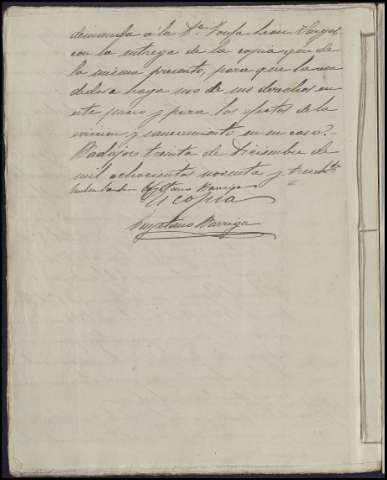 demanda á la Dª Josefa
con la entrega de la copia que de
la misma presento, para que la
haga uso de sus derechos en
este juicio y para los efectos de la
y saneamiento en su caso.
Badajoz treinta de Diciembre de
mil ochocientos noventa y
Cayetano Barriga
Es copia
Cayetano Barriga